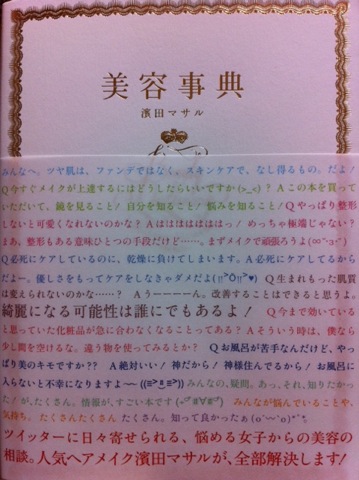 美容事典
濱田マサル
みんなへ。ツヤ肌は、ファンデではなく、スキンケアで、なし得るもの。だよ!
Q今すぐメイクが上達するにはどうしたらいいですか(>_<)? Aこの本を買っ
ていただいて、鏡を見ること!自分を知ること!悩みを知ること!Qやっぱり整形
しないと可愛くなれないのかな? Aはははははははっ!めっちゃ極端じゃない?
まあ、整形もある意味ひとつの手段だけど……。まずメイクで頑張ろうよ(∞^З^)
Q必死にケアしているのに、乾燥に負けてしまいます。 A必死にケアしてるから
だよー。優しさをもってケアをしなきゃダメだよ Q生まれもった肌質
は変えられないのかな……? Aうーーーーん。改善することはできると思うよ。
綺麗になる可能性は誰にでもあるよ! Q今まで効いている
と思っていた化粧品が急に合わなくなることってある? Aそういう時は、僕なら
少し間を空けるな。違う物を使ってみるとか。 Qお風呂が苦手なんだけど、やっ
ぱり美のキモですか?? A絶対いい!神だから!神様住んでるから!お風呂に
入らないと不幸になりますよ〜 みんなの、疑問。あっ、それ、知りたかっ
た!が、たくさん。情報が、すごい本です みんなが悩んでいることや、
気持ち。たくさんたくさん たくさん。知って良かったぁ
ツイッターに日々寄せられる、悩める女子からの美容の
相談。人気ヘアメイク濱田マサルが、全部解決します!